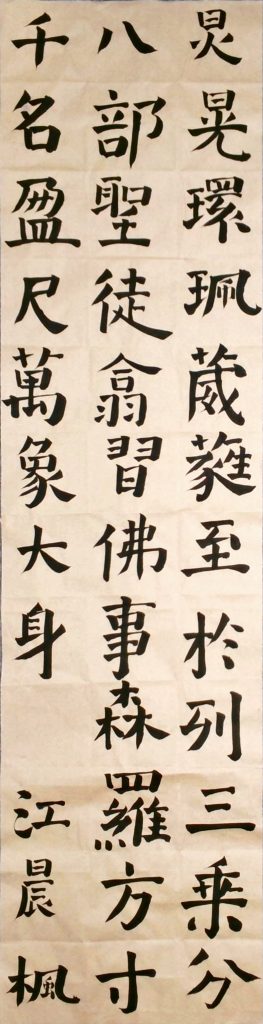 炅晃環珮葳蕤至於列三乘分
八部聖徒翕習佛事森羅方寸
千名盈尺萬象大身
江晨楓